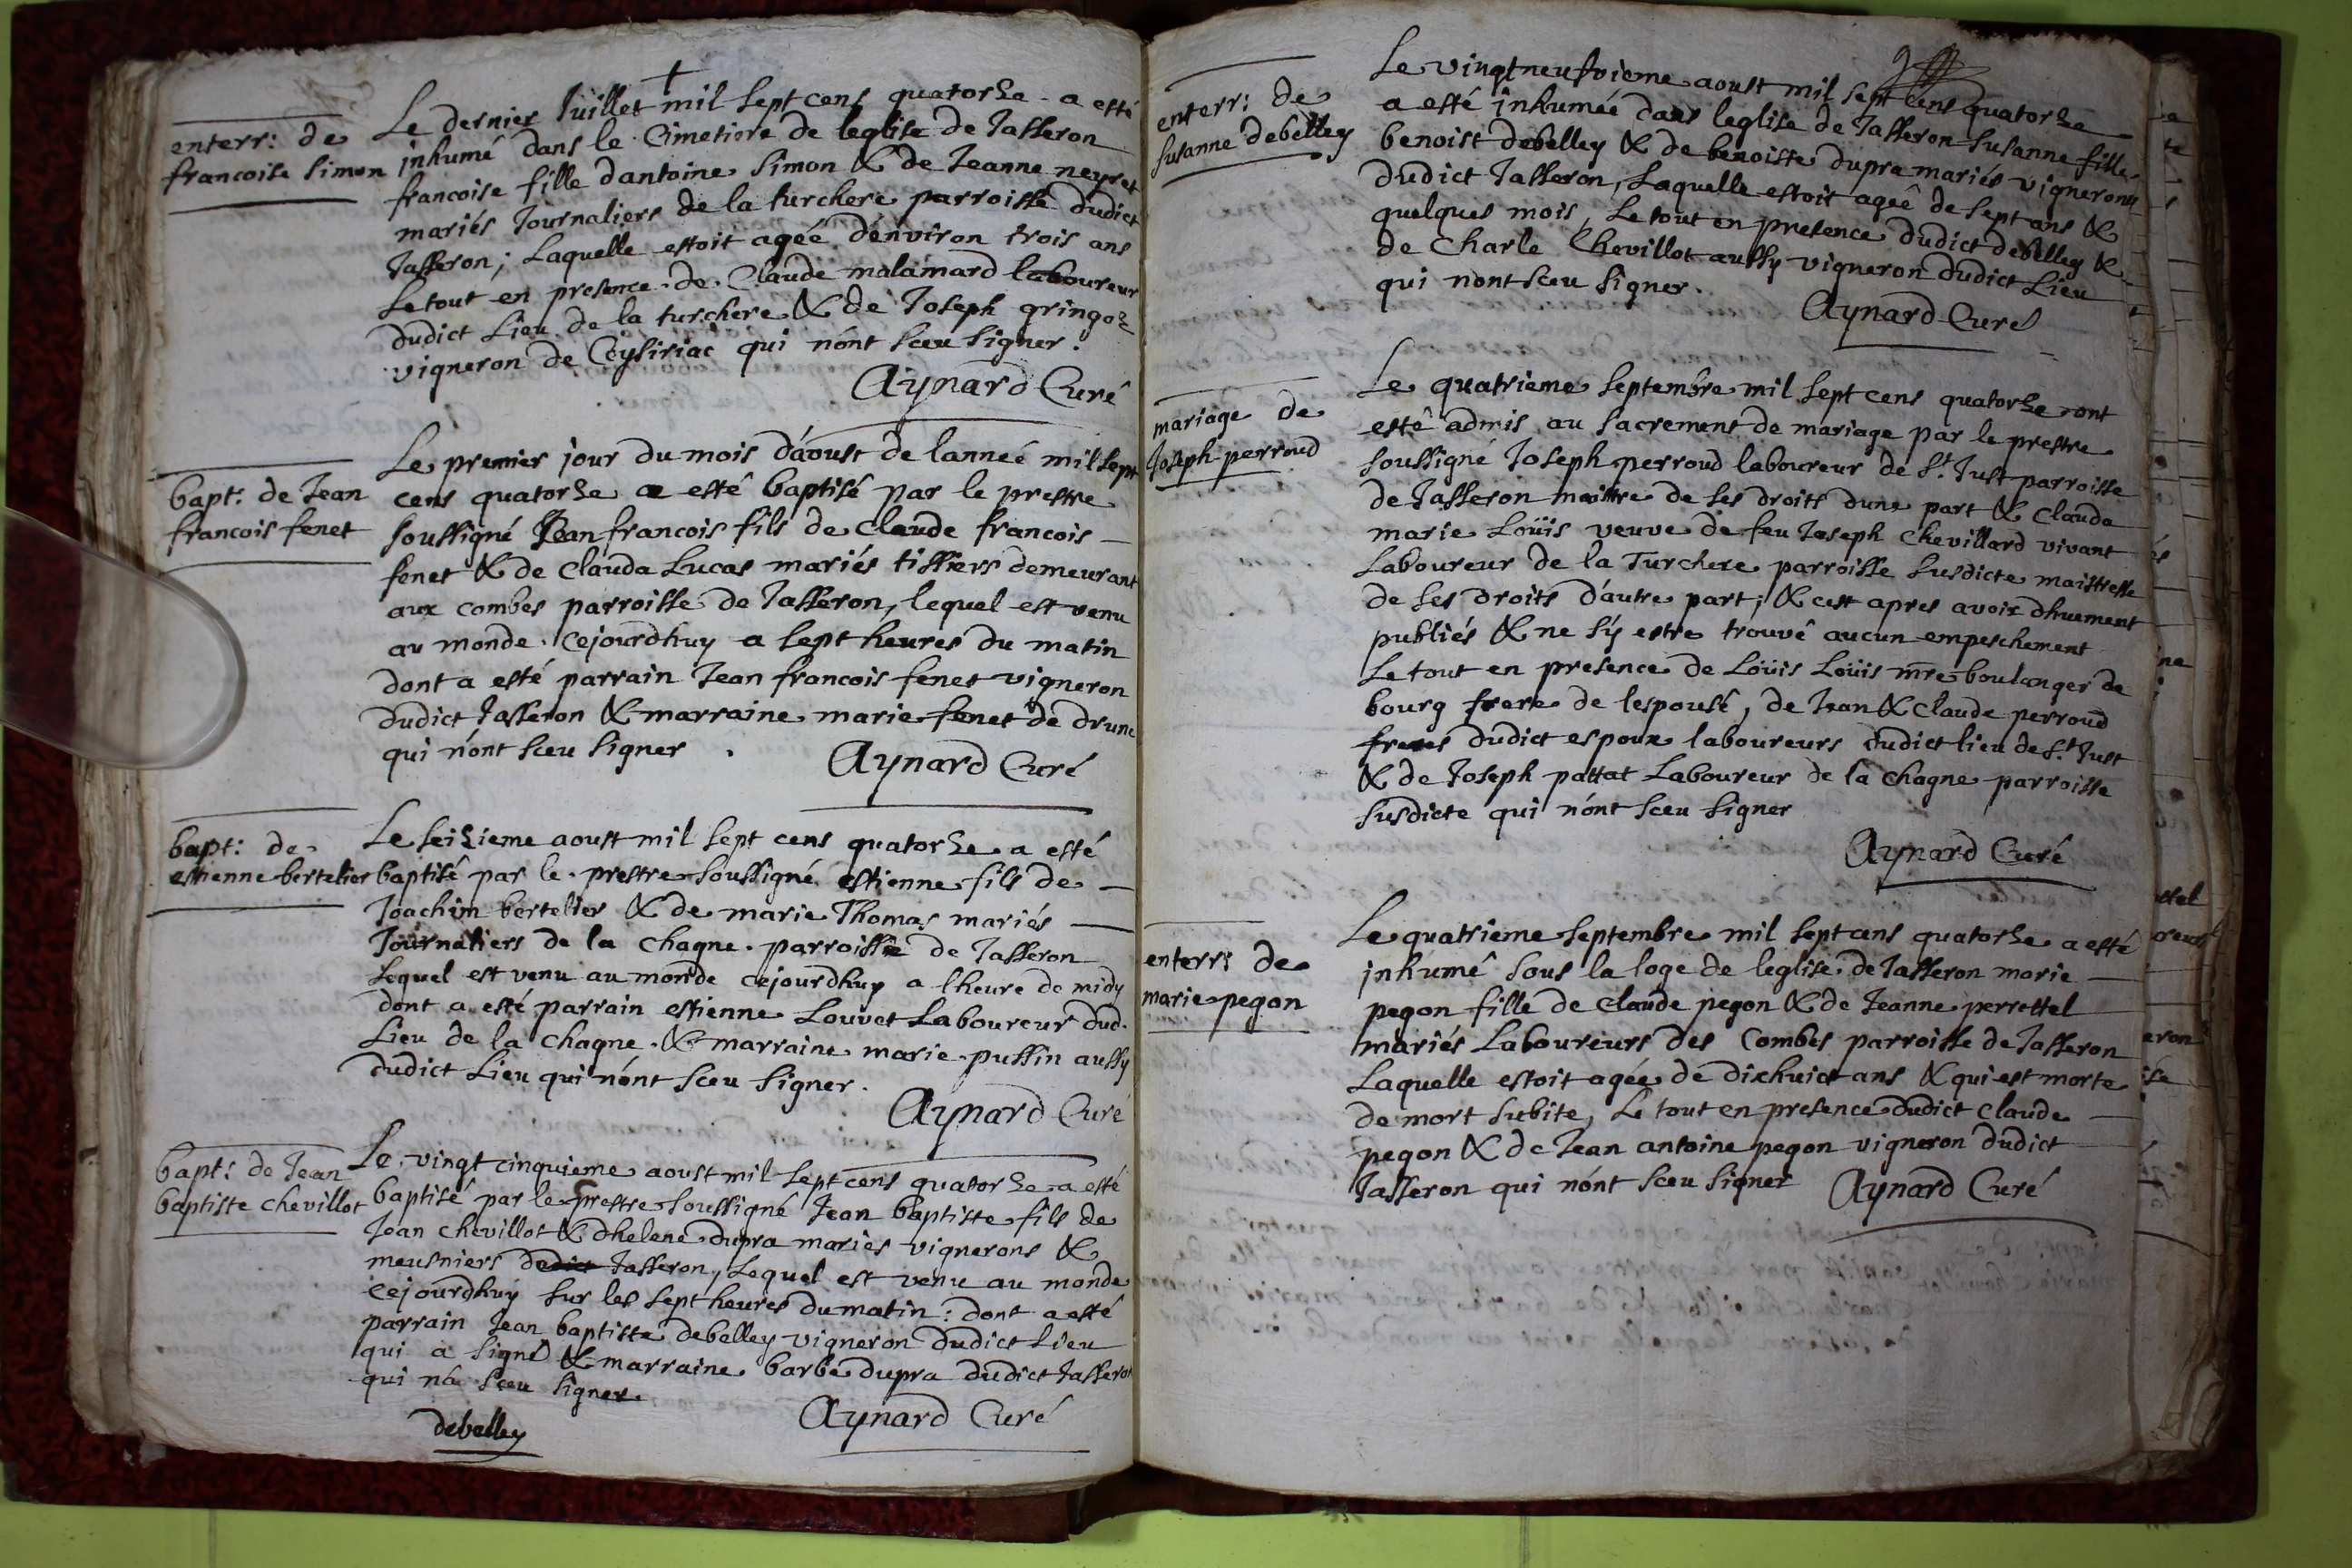 enterr: de
francoise simon
Le dernier Juillet mil sept cens quatorze a esté
inhumé dans le Cimetiere de leglise de Jasseron
francoise fille dantoine Simon & de Jeanne neyret
mariés Journaliers de la turchere parroisse dudict
Jasseron; Laquelle estoit agée d'environ trois ans
Le tout en presence de Claude malamard laboureur
dudict Lieu de la turchere & de Joseph gringoz
vigneron de Ceysiriac qui n'ont sceu signer.
Aynard Curé
bapt: de Jean
francois fenet
Le premier jour du mois d'aoust de lanneé mil sept
cens quatorze a esté baptisé par le prestre
soussigné Jean francois fils de Claude francois
fenet & de Clauda Lucas mariés tissiers demeurant
aux combes parroisse de Jasseron, lequel est venu
au monde cejourdhuy a sept heures du matin
dont a esté parrain Jean francois fenet vigneron
dudict Jasseron & marraine marie fenet de drunc
qui n'ont sceu signer.
Aynard Curé
bapt: de
estienne bertelier
Le seizieme aoust mil sept cens quatorze a esté
baptisé par le prestre soussigné estienne fils de
Joachim bertelier & de marie Thomas mariés
Journaliers de la chagne parroisse de Jasseron
Lequel est venu au monde cejourdhuy a lheure de midy
dont a esté parrain estienne Louvet Laboureur dud.
Lieu de la chagne & marraine marie pussin aussy
dudict Lieu qui n'ont sceu signer.
Aynard Curé
bapt: de Jean
baptiste chevillot
Le vingt cinquieme aoust mil sept cens quatorze a esté
baptisé par le prestre soussigné Jean baptiste fils de
Jean chevillot & dhelene dupra mariés vignerons &
meusniers dudict Jasseron, Lequel est venu au monde
cejourdhuy sur les sept heures du matin: dont a esté
parrain Jean baptiste debelley vigneron dudict Lieu
qui a signé & marraine barbe dupra dudict Jasseron
qui n'a sceu signer.
debelley
Aynard Curé
enterr: de
Susanne debelley
Le vingtneufvieme aoust mil sept cens quatorze
a esté inhumée dans leglise de Jasseron Susanne fille
benoist debelley & de benoiste dupra mariés vignerons
dudict Jasseron, Laquelle estoit ageê de sept ans &
quelques mois, Le tout en presence dudict debelley &
de Charle Chevillot aussy vigneron dudict Lieu
qui n'ont sceu signer.
Aynard Curé
mariage de
Joseph perroud
Le quatrieme Septembre mil sept cens quatorze ont
esté admis au Sacrement de mariage par le prestre
soussigné Joseph perroud laboureur de St. Just parroisse
de Jasseron maistre de ses droits dune part & Clauda
marie Loüis veuve de feu Joseph Chevillard vivant
Laboureur de la Turchere parroisse susdicte maistresse
de ses droits d'autre part; & cest apres avoir dhuement
publiés & ne s'y estre trouvé aucun empeschement
Le tout en presence de Loüis Loüis mre boulanger de
bourg frere de lespousé, de Jean & Claude perroud
freres dudict espoux laboureurs dudict lieu de St. Just
& de Joseph pattat Laboureur de la Chagne parroisse
susdicte qui n'ont sceu signer
Aynard Curé
enterr: de
marie pegon
Le quatrieme septembre mil sept cens quatorze a esté
inhumê sous la loge de leglise de Jasseron marie
pegon fille de Claude pegon & de Jeanne perrettel
mariés Laboureurs des Combes parroisse de Jasseron
Laquelle estoit agée de dixhuict ans & qui est morte
de mort subite, Le tout en presence dudict Claude
pegon & de Jean antoine pegon vigneron dudict
Jasseron qui n'ont sceu signer Aynard Curé